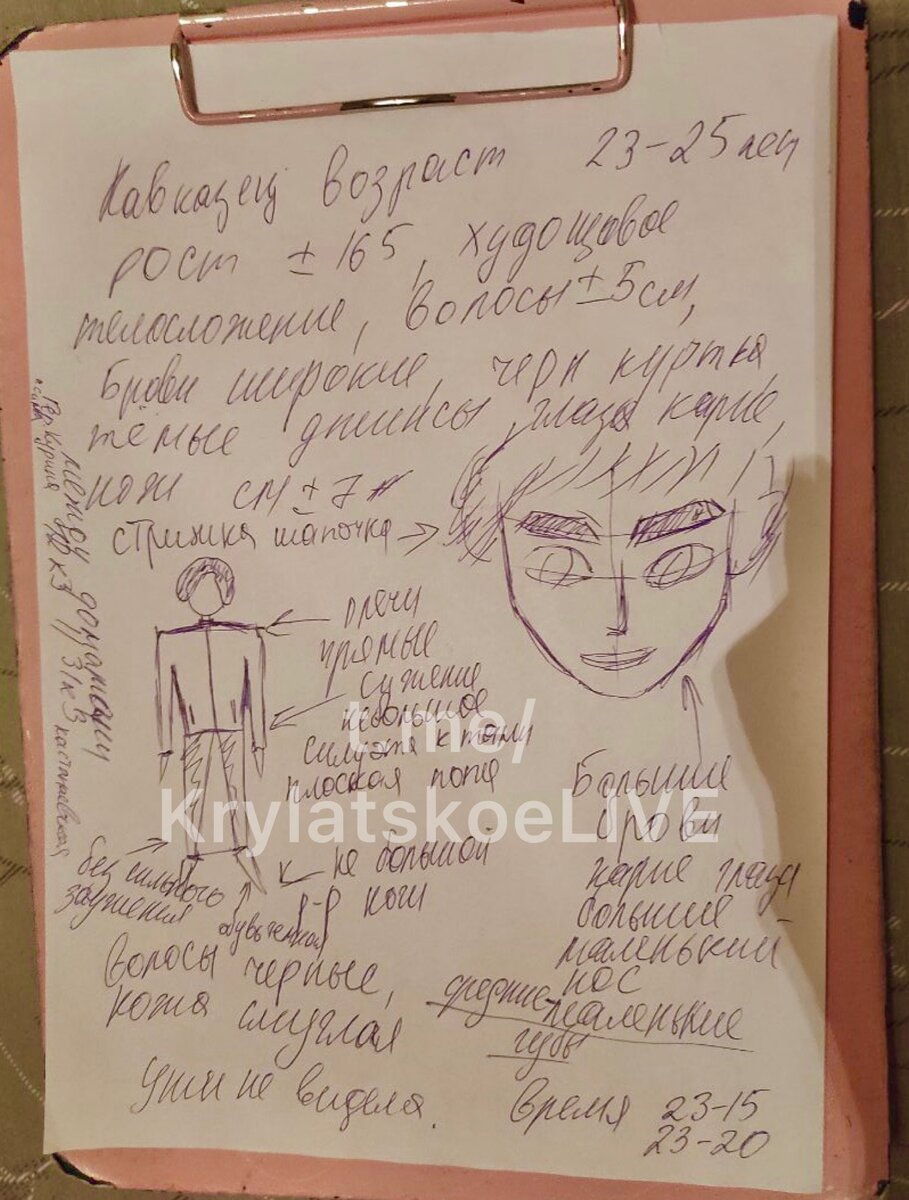 Кавказец возраст 23-25 лет
рост ±165, худощавое
телосложение, волосы ±5см,
Брови широкие, черн куртка,
тёмые джинсы, глаза карие,
нож см ±7
стрижка шапочка
плечи
прямые
сужение
небольшое
силуэта к талии
плоская попа
Большие
брови
карие глаза
большие
маленький
нос
средние-маленькие
губы
без сильного
заужения
обувь темная
не большой
р-р ноги
Волосы черные,
кожа смуглая
Уши не видела.
Время 23-15
23-20
между домами
31к3
t.me/
KrylatskoeLIVE